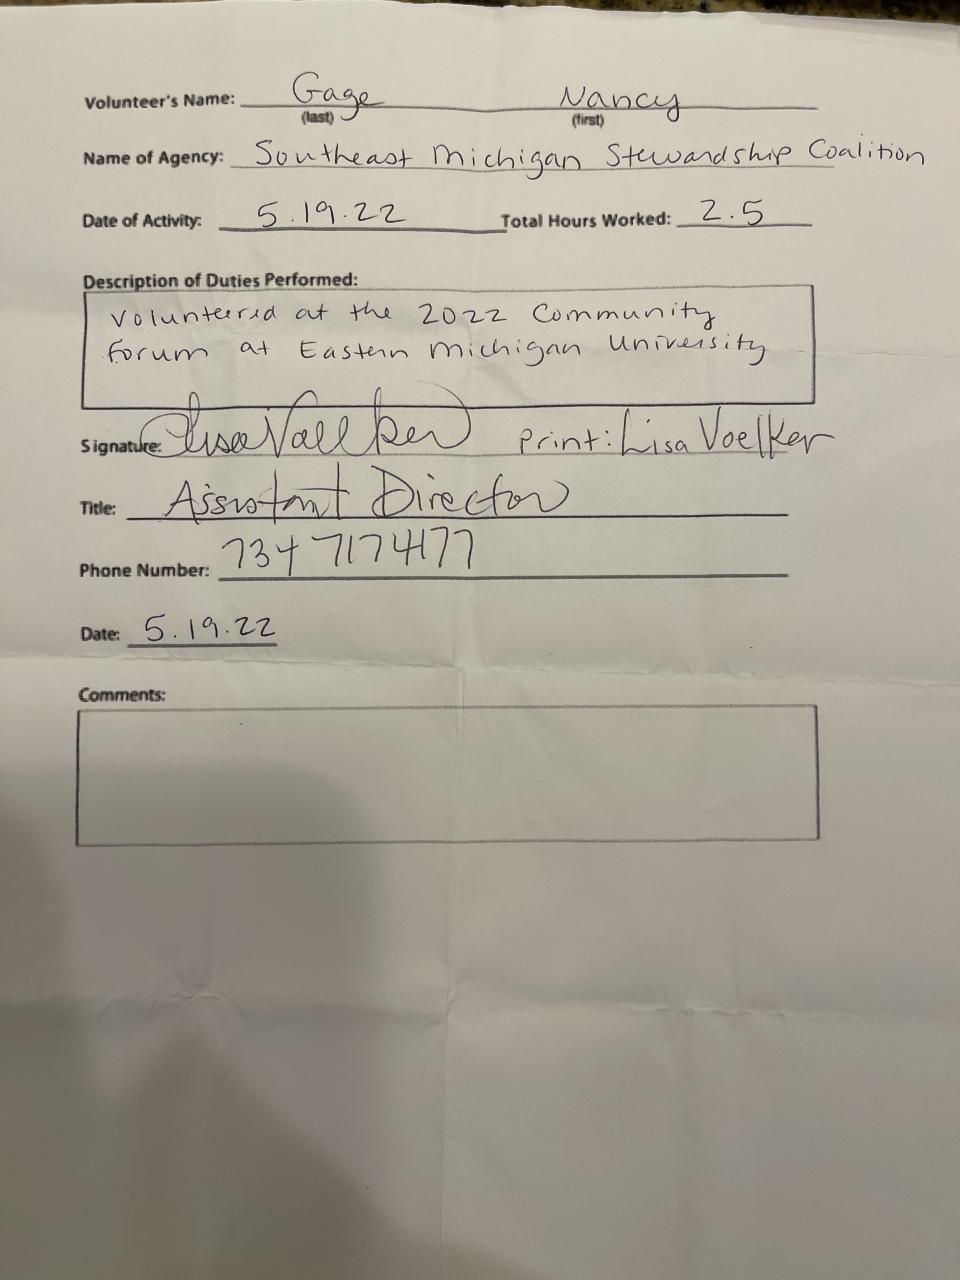 Volunteer's Name: Gage Nancy
(last) (first)
Name of Agency: Southeast Michigan Stewardship Coalition
Date of Activity: 5.19.22 Total Hours Worked: 2.5
Description of Duties Performed:
Volunteered at the 2022 Community
Forum at Eastern Michigan University
Signature: Lisa Voelker Print: Lisa Voelker
Title: Assistant Director
Phone Number: 734 7174177
Date: 5.19.22
Comments: